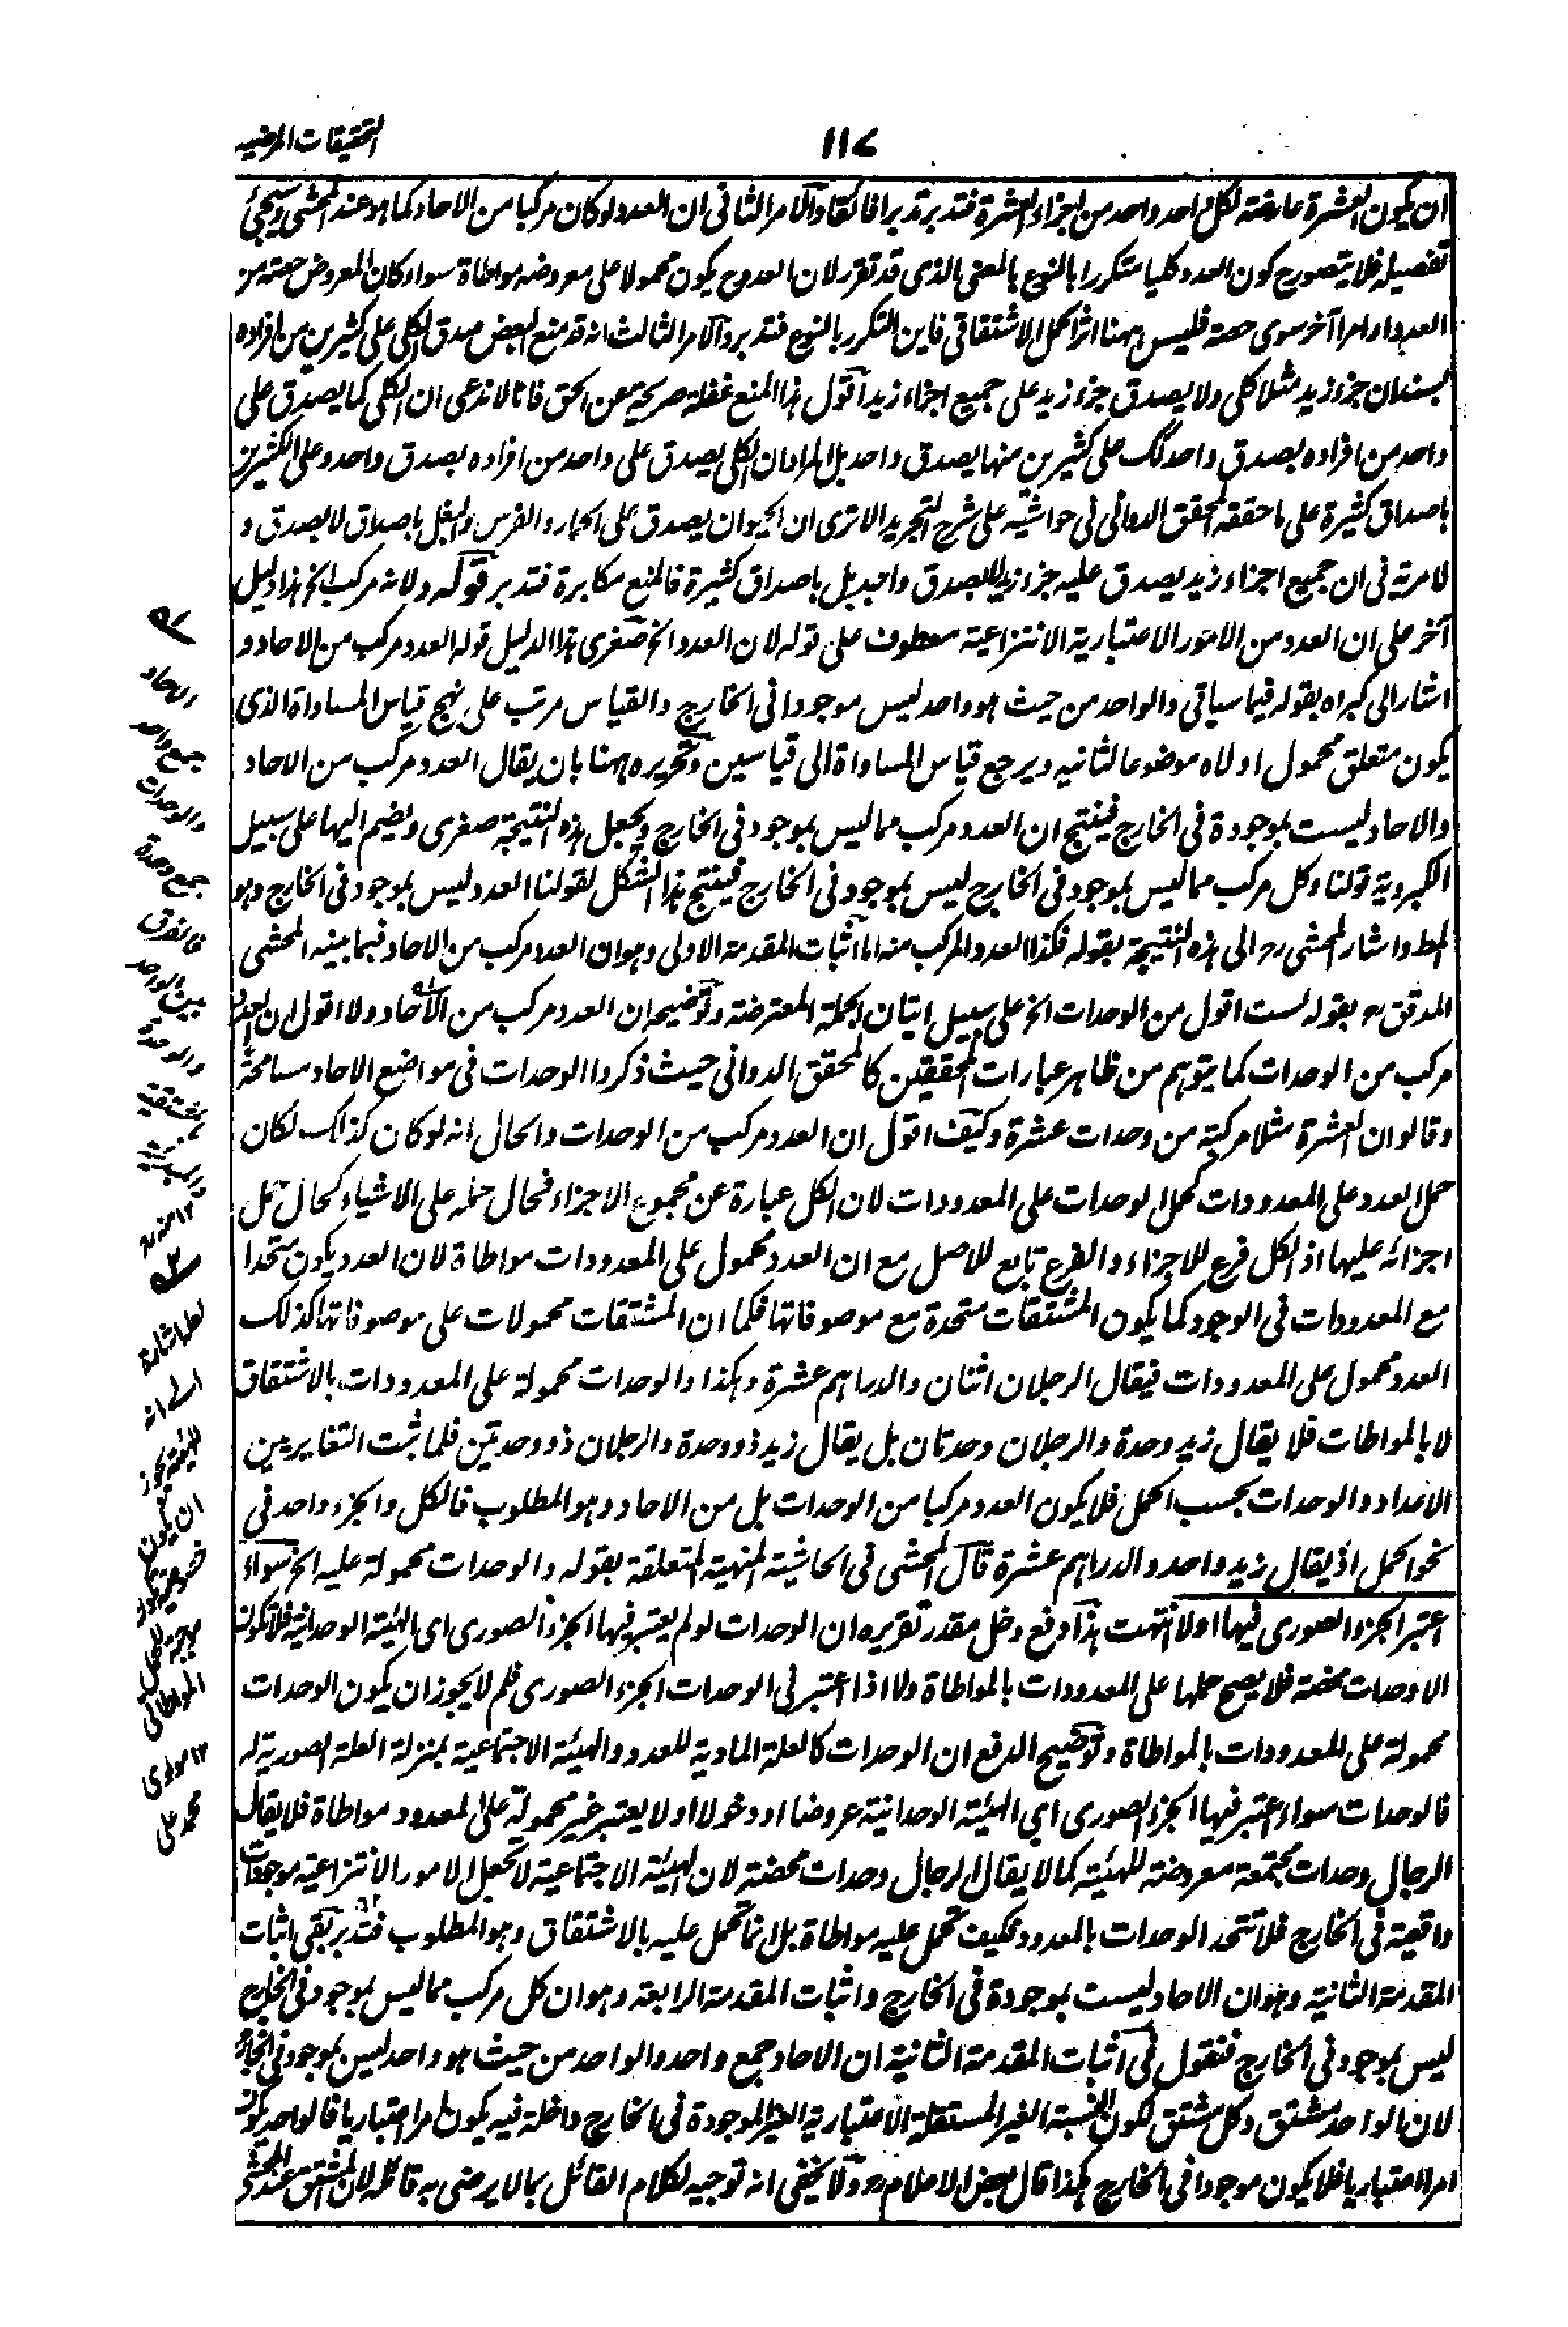 التحقيقات المرضيه
١١٧
ان يكون العشرة عارضة لكل واحد واحد من اجزاء العشرة فتدبر تدبرا فائقا والامر الثانى ان العدد لو كان مركبا من الاحاد كما هو عند المحشى وسيجئ
تفصيله فلا يتصورح كون العدد كليا متكررا بالنوع بالمعنى الذى قد تقرر لان العددح يكون محمولا على معروضه مواطاة سواء كان المعروض حصة من
العدد او امرا آخر سوى حصة فليس ههنا اثر الحمل الاشتقاقى فاين التكرر بالنوع فتدبر والامر الثالث انه قد منع البعض صدق الكلى على كثيرين من افراده
بسند ان جزء زيد مثلا كلى ولا يصدق جزء زيد على جميع اجزاء زيد اقول هذا المنع غفلة صريحة عن الحق فانا لا ندعى ان الكلى كما يصدق على
واحد من افراده بصدق واحد كك على كثيرين منها يصدق واحد بل المراد ان الكلى يصدق على واحد من افراده بصدق واحد وعلى الكثيرين
باصداق كثيرة على ما حققه المحقق الدوانى فى حواشيه على شرح التجريد الا ترى ان الحيوان يصدق على الحمار والفرس والبغل باصداق لا بصدق و
لا مرية فى ان جميع اجزاء زيد يصدق عليه جزء زيد لا بصدق واحد بل باصداق كثيرة فالمنع مكابرة فتدبر قوله ولانه مركب الخ هذا دليل
آخر على ان العدد من الامور الاعتبارية الانتزاعية معطوف على قوله لان العدد الخ صغرى هذا الدليل قوله العدد مركب من الاحاد و
اشار الى كبراه بقوله فيما سياتى والواحد من حيث هو واحد ليس موجودا فى الخارج والقياس مرتب على نهج قياس المساواة الذى
يكون متعلق محمول اولاه موضوعا لثانيه ويرجع قياس المساواة الى قياسين وتحريره ههنا بان يقال العدد مركب من الاحاد
والاحاد ليست بموجودة فى الخارج فينتج ان العدد مركب مما ليس بموجود فى الخارج ويجعل هذه النتيجة صغرى ويضم اليها على سبيل
الكبروية قولنا وكل مركب مما ليس بموجود فى الخارج ليس بموجود فى الخارج فينتج هذا الشكل لقولنا العدد ليس بموجود فى الخارج وهو
المط واشار المحشى رح الى هذه النتيجة بقوله فكذا العدد المركب منه اما اثبات المقدمة الاولى وهو ان العدد مركب من الاحاد فبما بينه المحشى
المدقق رح بقوله لست اقول من الوحدات الخ على سبيل اتيان الجملة المعترضة وتوضيحه ان العدد مركب من الاحاد ولا اقول ان العدد
مركب من الوحدات كما يتوهم من ظاهر عبارات المحققين كالمحقق الدوانى حيث ذكروا الوحدات فى مواضع الاحاد مسامحة
وقالوا ان العشرة مثلا مركبة من وحدات عشرة وكيف اقول ان العدد مركب من الوحدات والحال انه لو كان كذلك لكان
حمل العدد على المعدودات كحمل الوحدات على المعدودات لان الكل عبارة عن مجموع الاجزاء فحال حمله على الاشياء كحال حمل
اجزائه عليها اذ الكل فرع للاجزاء والفرع تابع للاصل مع ان العدد محمول على المعدودات مواطاة لان العدد يكون متحدا
مع المعدودات فى الوجود كما يكون المشتقات متحدة مع موصوفاتها فكما ان المشتقات محمولات على موصوفاتها كذلك
العدد محمول على المعدودات فيقال الرجلان اثنان والدراهم عشرة وهكذا والوحدات محمولة على المعدودات بالاشتقاق
لا بالمواطات فلا يقال زيد وحدة والرجلان وحدتان بل يقال زيد ذو وحدة والرجلان ذو وحدتين فلما ثبت التغاير بين
الاعداد والوحدات بحسب الحمل فلا يكون العدد مركبا من الوحدات بل من الاحاد وهو المطلوب فالكل والجزء واحد فى
نحو الحمل اذ يقال زيد واحد والدراهم عشرة قال المحشى فى الحاشية المنهية المتعلقة بقوله والوحدات محمولة عليه الخ سواء
اعتبر الجزء الصورى فيها اولا انتهت هذا دفع دخل مقدر تقريره ان الوحدات لو لم يعتبر فيها الجزء الصورى اى الهيئة الوحدانية فلا تكون
الا وحدات محضة فلا يصح حملها على المعدودات بالمواطاة ولا اذا اعتبر فى الوحدات الجزء الصورى فلم لا يجوز ان يكون الوحدات
محمولة على المعدودات بالمواطاة وتوضيح الدفع ان الوحدات كالعلة المادية للعدد والهيئة الاجتماعية بمنزلة العلة الصورية له
فالوحدات سواء اعتبر فيها الجزء الصورى اى الهيئة الوحدانية عروضا او دخولا او لا يعتبر غير محمولة على المعدود مواطاة فلا يقال
الرجال وحدات مجتمعة معروضة للهيئة كما لا يقال الرجال وحدات محضة لان الهيئة الاجتماعية لا تجعل الامور الانتزاعية موجودات
واقعية فى الخارج فلا تتحد الوحدات بالمعدود فكيف تحمل عليه مواطاة بل انما تحمل عليه بالاشتقاق وهو المطلوب فتدبر بقى اثبات
المقدمة الثانية وهو ان الاحاد ليست بموجودة فى الخارج واثبات المقدمة الرابعة وهو ان كل مركب مما ليس بموجود فى الخارج
ليس بموجود فى الخارج فنقول فى اثبات المقدمة الثانية ان الاحاد جمع واحد والواحد من حيث هو واحد ليس بموجود فى الخارج
لان الواحد مشتق وكل مشتق لكون النسبة الغير المستقلة الاعتبارية الغير الموجودة فى الخارج داخلة فيه يكون امرا اعتباريا فالواحد يكون
امرا اعتباريا فلا يكون موجودا فى الخارج هكذا قال بعض الاعلام رح ولا يخفى انه توجيه لكلام القائل بما لا يرضى به قائله لان المشتق عند المحشى
الاحاد
جمع واحد
والوحدات
جمع وحدة
فالفرق
بين الواحد
والوحدة
١٢ منه
لعله اشارة
الى انه
ان يكون
المواطاتى
١٢ مولوى
محمد على